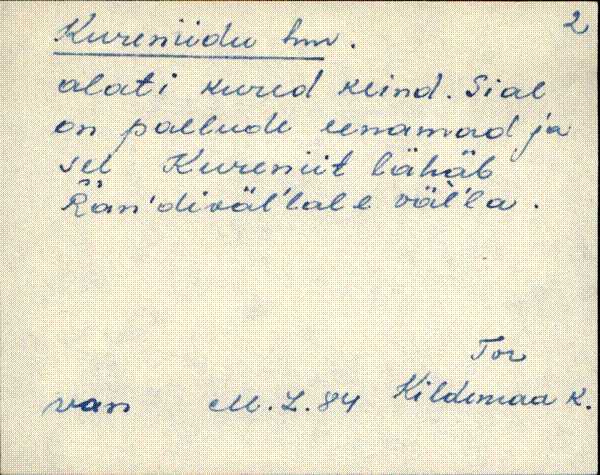 2
Kureniidu hnr.
alati kured keind. Sial
on palludẹ eenamad ja
sel Kureniit lähäb
Rän'diväl'lale väl'la.
Tor
van M. Z. 84 Kildemaa k.